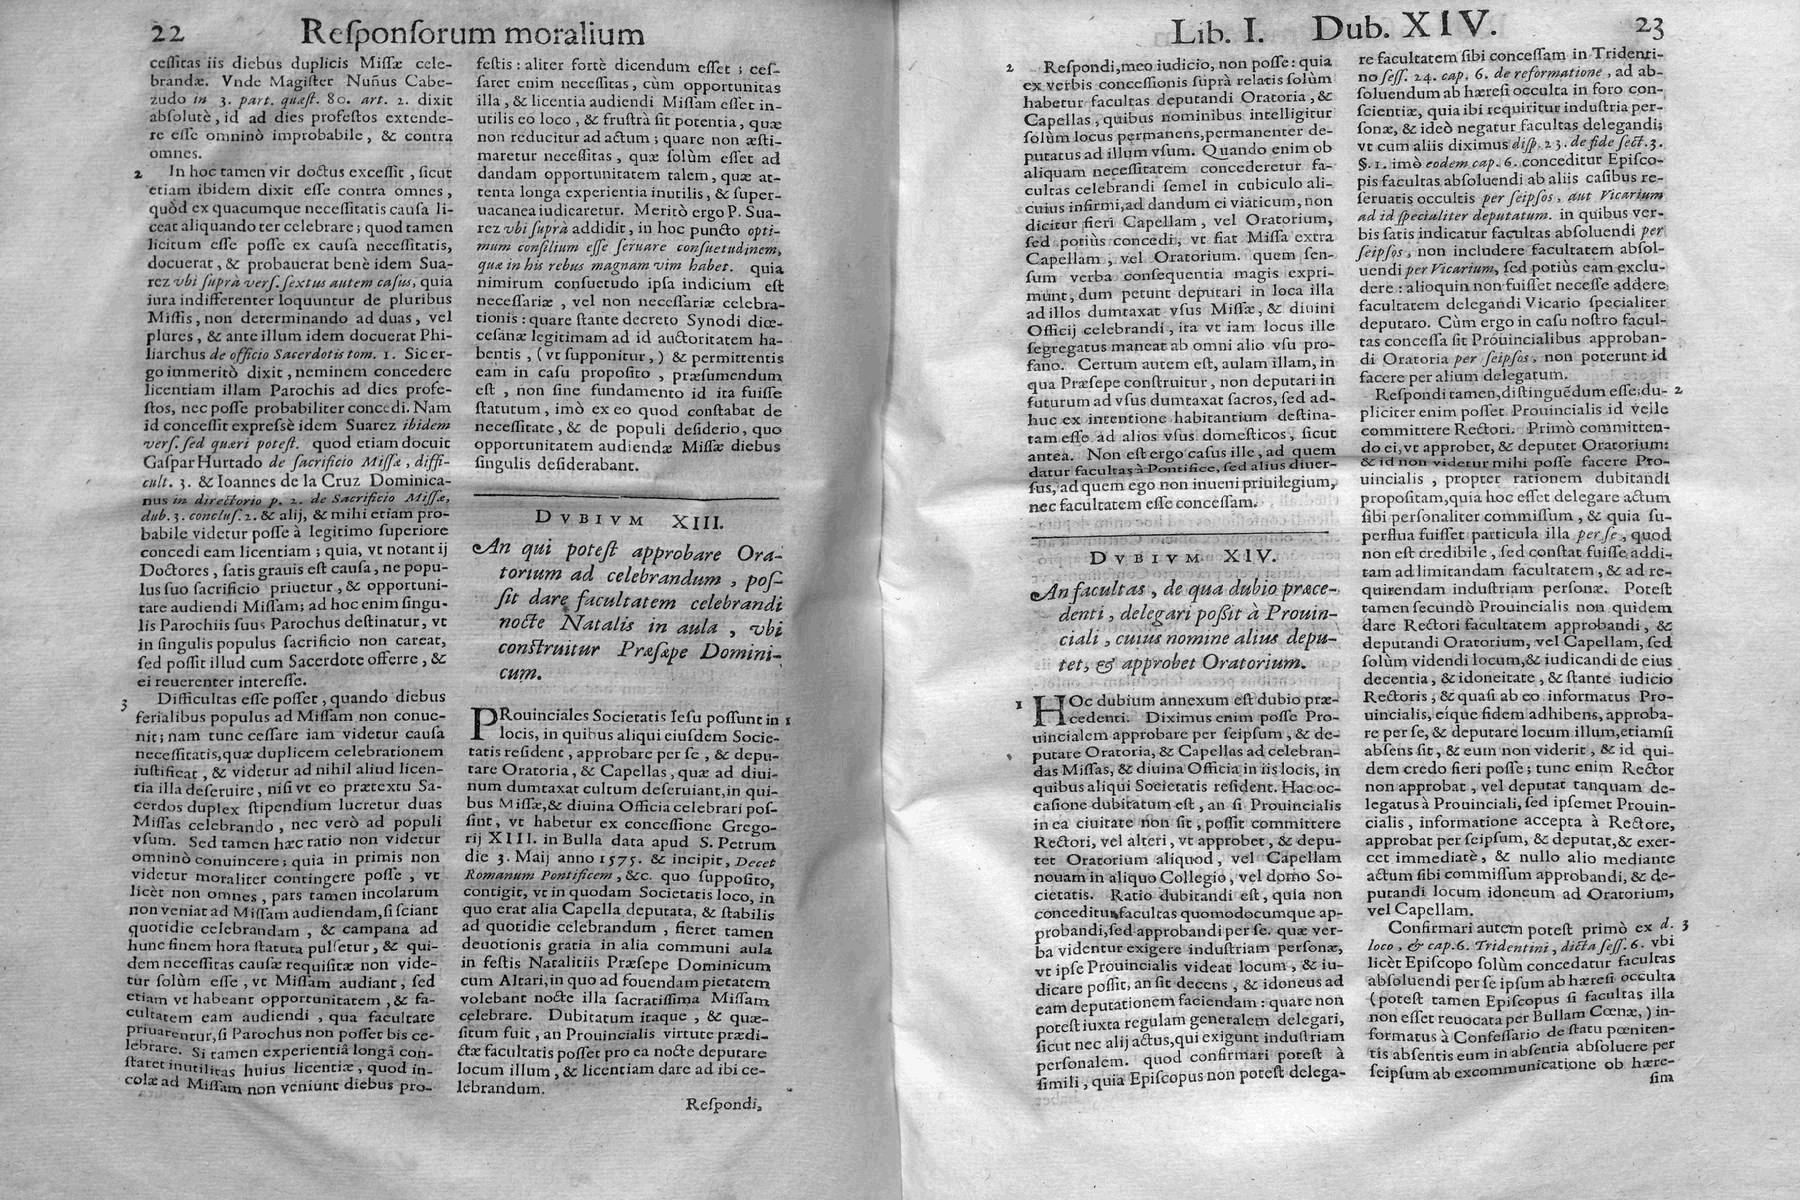 22 Reſponſorum moralium
ceſſitas iis diebus duplicis Miſſæ cele-
brandæ. Vnde Magiſter Nuñus Cabe-
zudo in 3. part. quæſt. 80. art. 2. dixit
abſolutè, id ad dies profeſtos extende-
re eſſe omninò improbabile, & contra
omnes.
2 In hoc tamen vir doctus exceſſit, ſicut
etiam ibidem dixit eſſe contra omnes,
quòd ex quacumque neceſſitatis cauſa li-
ceat aliquando ter celebrare; quod tamen
licitum eſſe poſſe ex cauſa neceſſitatis,
docuerat, & probauerat benè idem Sua-
rez vbi ſuprà verſ. ſextus autem caſus, quia
iura indifferenter loquuntur de pluribus
Miſſis, non determinando ad duas, vel
plures, & ante illum idem docuerat Phi-
liarchus de officio Sacerdotis tom. 1. Sic er-
go immeritò dixit, neminem concedere
licentiam illam Parochis ad dies profe-
ſtos, nec poſſe probabiliter concedi. Nam
id conceſſit expreſsè idem Suarez ibidem
verſ. ſed quæri poteſt. quod etiam docuit
Gaſpar Hurtado de ſacrificio Miſſæ, diffi-
cult. 3. & Ioannes de la Cruz Dominica-
nus in directorio p. 2. de Sacrificio Miſſæ,
dub. 3. concluſ. 2. & alij, & mihi etiam pro-
babile videtur poſſe à legitimo ſuperiore
concedi eam licentiam; quia, vt notant ij
Doctores, ſatis grauis eſt cauſa, ne popu-
lus ſuo ſacrificio priuetur, & opportuni-
tate audiendi Miſſam; ad hoc enim ſingu-
lis Parochiis ſuus Parochus deſtinatur, vt
in ſingulis populus ſacrificio non careat,
ſed poſſit illud cum Sacerdote offerre, &
ei reuerenter intereſſe.
3 Difficultas eſſe poſſet, quando diebus
ferialibus populus ad Miſſam non conue-
nit; nam tunc ceſſare iam videtur cauſa
neceſſitatis, quæ duplicem celebrationem
iuſtificat, & videtur ad nihil aliud licen-
tia illa deſeruire, niſi vt eo prætextu Sa-
cerdos duplex ſtipendium lucretur duas
Miſſas celebrando, nec verò ad populi
vſum. Sed tamen hæc ratio non videtur
omninò conuincere; quia in primis non
videtur moraliter contingere poſſe, vt
licèt non omnes, pars tamen incolarum
non veniat ad Miſſam audiendam, ſi ſciant
quotidie celebrandam, & campana ad
hunc finem hora ſtatuta pulſetur, & qui-
dem neceſſitas cauſæ requiſitæ non vide-
tur ſolùm eſſe, vt Miſſam audiant, ſed
etiam vt habeant opportunitatem, & fa-
cultatem eam audiendi, qua facultate
priuarentur, ſi Parochus non poſſet bis ce-
lebrare. Si tamen experientiâ longâ con-
ſtaret inutilitas huius licentiæ, quod in-
colæ ad Miſſam non veniunt diebus pro-
feſtis: aliter fortè dicendum eſſet; ceſ-
ſaret enim neceſſitas, cùm opportunitas
illa, & licentia audiendi Miſſam eſſet in-
utilis eo loco, & fruſtrà ſit potentia, quæ
non reducitur ad actum; quare non æſti-
maretur neceſſitas, quæ ſolùm eſſet ad
dandam opportunitatem talem, quæ at-
tenta longa experientia inutilis, & ſuper-
uacanea iudicaretur. Meritò ergo P. Sua-
rez vbi ſuprà addidit, in hoc puncto opti-
mum conſilium eſſe ſeruare conſuetudinem,
quæ in his rebus magnam vim habet. quia
nimirum conſuetudo ipſa indicium eſt
neceſſariæ, vel non neceſſariæ celebra-
tionis: quare ſtante decreto Synodi diœ-
ceſanæ legitimam ad id auctoritatem ha-
bentis, (vt ſupponitur,) & permittentis
eam in caſu propoſito, præſumendum
eſt, non ſine fundamento id ita fuiſſe
ſtatutum, imò ex eo quod conſtabat de
neceſſitate, & de populi deſiderio, quo
opportunitatem audiendæ Miſſæ diebus
ſingulis deſiderabant.
DVBIVM XIII.
An qui poteſt approbare Ora-
torium ad celebrandum, poſ-
ſit dare facultatem celebrandi
nocte Natalis in aula, vbi
conſtruitur Præſæpe Domini-
cum.
PRouinciales Societatis Ieſu poſſunt in 1
locis, in quibus aliqui eiuſdem Socie-
tatis reſident, approbare per ſe, & depu-
tare Oratoria, & Capellas, quæ ad diui-
num dumtaxat cultum deſeruiant, in qui-
bus Miſſæ, & diuina Officia celebrari poſ-
ſint, vt habetur ex conceſſione Grego-
rij XIII. in Bulla data apud S. Petrum
die 3. Maij anno 1575. & incipit, Decet
Romanum Pontificem, &c. quo ſuppoſito,
contigit, vt in quodam Societatis loco, in
quo erat alia Capella deputata, & ſtabilis
ad quotidie celebrandum, fieret tamen
deuotionis gratia in alia communi aula
in feſtis Natalitiis Præſepe Dominicum
cum Altari, in quo ad fouendam pietatem
volebant nocte illa ſacratiſſima Miſſam
celebrare. Dubitatum itaque, & quæ-
ſitum fuit, an Prouincialis virtute prædi-
ctæ facultatis poſſet pro ea nocte deputare
locum illum, & licentiam dare ad ibi ce-
lebrandum.
Reſpondi,
Lib. I. Dub. XIV. 23
2 Reſpondi, meo iudicio, non poſſe: quia
ex verbis conceſſionis ſuprà relatis ſolùm
habetur facultas deputandi Oratoria, &
Capellas, quibus nominibus intelligitur
ſolùm locus permanens, permanenter de-
putatus ad illum vſum. Quando enim ob
aliquam neceſſitatem concederetur fa-
cultas celebrandi ſemel in cubiculo ali-
cuius infirmi, ad dandum ei viaticum, non
dicitur fieri Capellam, vel Oratorium,
ſed potiùs concedi, vt fiat Miſſa extra
Capellam, vel Oratorium. quem ſen-
ſum verba conſequentia magis expri-
munt, dum petunt deputari in loca illa
ad illos dumtaxat vſus Miſſæ, & diuini
Officij celebrandi, ita vt iam locus ille
ſegregatus maneat ab omni alio vſu pro-
fano. Certum autem eſt, aulam illam, in
qua Præſepe conſtruitur, non deputari in
futurum ad vſus dumtaxat ſacros, ſed ad-
huc ex intentione habitantium deſtina-
tam eſſe ad alios vſus domeſticos, ſicut
antea. Non eſt ergo caſus ille, ad quem
datur facultas à Pontifice, ſed alius diuer-
ſus, ad quem ego non inueni priuilegium,
nec facultatem eſſe conceſſam.
DVBIVM XIV.
An facultas, de qua dubio præce-
denti, delegari poſſit à Prouin-
ciali, cuius nomine alius depu-
tet, & approbet Oratorium.
1 HOc dubium annexum eſt dubio præ-
cedenti. Diximus enim poſſe Pro-
uincialem approbare per ſeipſum, & de-
putare Oratoria, & Capellas ad celebran-
das Miſſas, & diuina Officia in iis locis, in
quibus aliqui Societatis reſident. Hac oc-
caſione dubitatum eſt, an ſi Prouincialis
in ea ciuitate non ſit, poſſit committere
Rectori, vel alteri, vt approbet, & depu-
tet Oratorium aliquod, vel Capellam
nouam in aliquo Collegio, vel domo So-
cietatis. Ratio dubitandi eſt, quia non
conceditur facultas quomodocumque ap-
probandi, ſed approbandi per ſe. quæ ver-
ba videntur exigere induſtriam perſonæ,
vt ipſe Prouincialis videat locum, & iu-
dicare poſſit, an ſit decens, & idoneus ad
eam deputationem faciendam: quare non
poteſt iuxta regulam generalem delegari,
ſicut nec alij actus, qui exigunt induſtriam
perſonalem. quod confirmari poteſt à
ſimili, quia Epiſcopus non poteſt delega-
re facultatem ſibi conceſſam in Tridenti-
no ſeſſ. 24. cap. 6. de reformatione, ad ab-
ſoluendum ab hæreſi occulta in foro con-
ſcientiæ, quia ibi requiritur induſtria per-
ſonæ, & ideò negatur facultas delegandi;
vt cum aliis diximus diſp. 23. de fide ſect. 3.
§. 1. imò eodem cap. 6. conceditur Epiſco-
pis facultas abſoluendi ab aliis caſibus re-
ſeruatis occultis per ſeipſos, aut Vicarium
ad id ſpecialiter deputatum. in quibus ver-
bis ſatis indicatur facultas abſoluendi per
ſeipſos, non includere facultatem abſol-
uendi per Vicarium, ſed potiùs eam exclu-
dere: alioquin non fuiſſet neceſſe addere,
facultatem delegandi Vicario ſpecialiter
deputato. Cùm ergo in caſu noſtro facul-
tas conceſſa ſit Prouincialibus approban-
di Oratoria per ſeipſos, non poterunt id
facere per alium delegatum.
Reſpondi tamen, diſtinguēdum eſſe: du- 2
pliciter enim poſſet Prouincialis id velle
committere Rectori. Primò committen-
do ei, vt approbet, & deputet Oratorium:
& id non videtur mihi poſſe facere Pro-
uincialis, propter rationem dubitandi
propoſitam, quia hoc eſſet delegare actum
ſibi perſonaliter commiſſum, & quia ſu-
perflua fuiſſet particula illa per ſe, quod
non eſt credibile, ſed conſtat fuiſſe addi-
tam ad limitandam facultatem, & ad re-
quirendam induſtriam perſonæ. Poteſt
tamen ſecundò Prouincialis non quidem
dare Rectori facultatem approbandi, &
deputandi Oratorium, vel Capellam, ſed
ſolùm videndi locum, & iudicandi de eius
decentia, & idoneitate, & ſtante iudicio
Rectoris, & quaſi ab eo informatus Pro-
uincialis, eique fidem adhibens, approba-
re per ſe, & deputare locum illum, etiamſi
abſens ſit, & eum non viderit, & id qui-
dem credo fieri poſſe; tunc enim Rector
non approbat, vel deputat tanquam de-
legatus à Prouinciali, ſed ipſemet Prouin-
cialis, informatione accepta à Rectore,
approbat per ſeipſum, & deputat, & exer-
cet immediatè, & nullo alio mediante
actum ſibi commiſſum approbandi, & de-
putandi locum idoneum ad Oratorium,
vel Capellam.
Confirmari autem poteſt primò ex d. 3
loco, & cap. 6. Tridentini, dicta ſeſſ. 6. vbi
licèt Epiſcopo ſolùm concedatur facultas
abſoluendi per ſe ipſum ab hæreſi occulta
(poteſt tamen Epiſcopus ſi facultas illa
non eſſet reuocata per Bullam Cœnæ,) in-
formatus à Confeſſario de ſtatu pœniten-
tis abſentis eum in abſentia abſoluere per
ſeipſum ab excommunicatione ob hære-
ſim